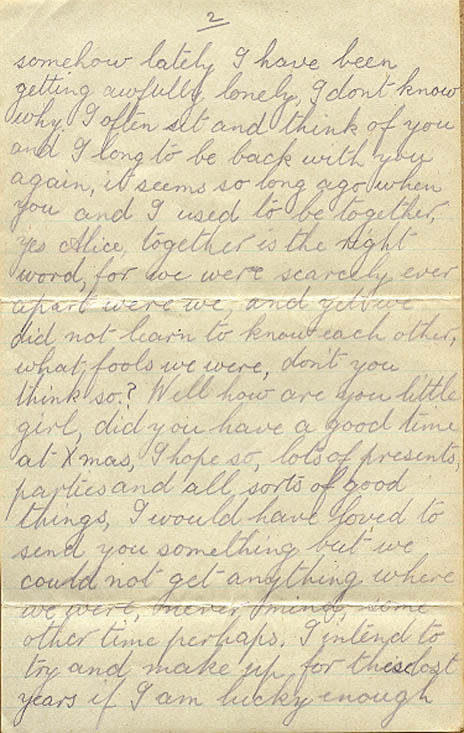 2
somehow lately I have been
getting awfully lonely, I dont know
why. I often sit and think of you
and I long to be back with you
again, it seems so long ago when
you and I used to be together,
yes Alice, together is the right
word, for we were scarcely ever
apart were we, and yet we
did not learn to know each other,
what fools we were, don't you
think so.? Well how are you little
girl, did you have a good time
at Xmas, I hope so, lots of presents,
parties and all sorts of good
things, I would have loved to
send you something but we
could not get anything where
we were, never mind, some
other time perhaps. I intend to
try and make up for these lost
years if I am lucky enough